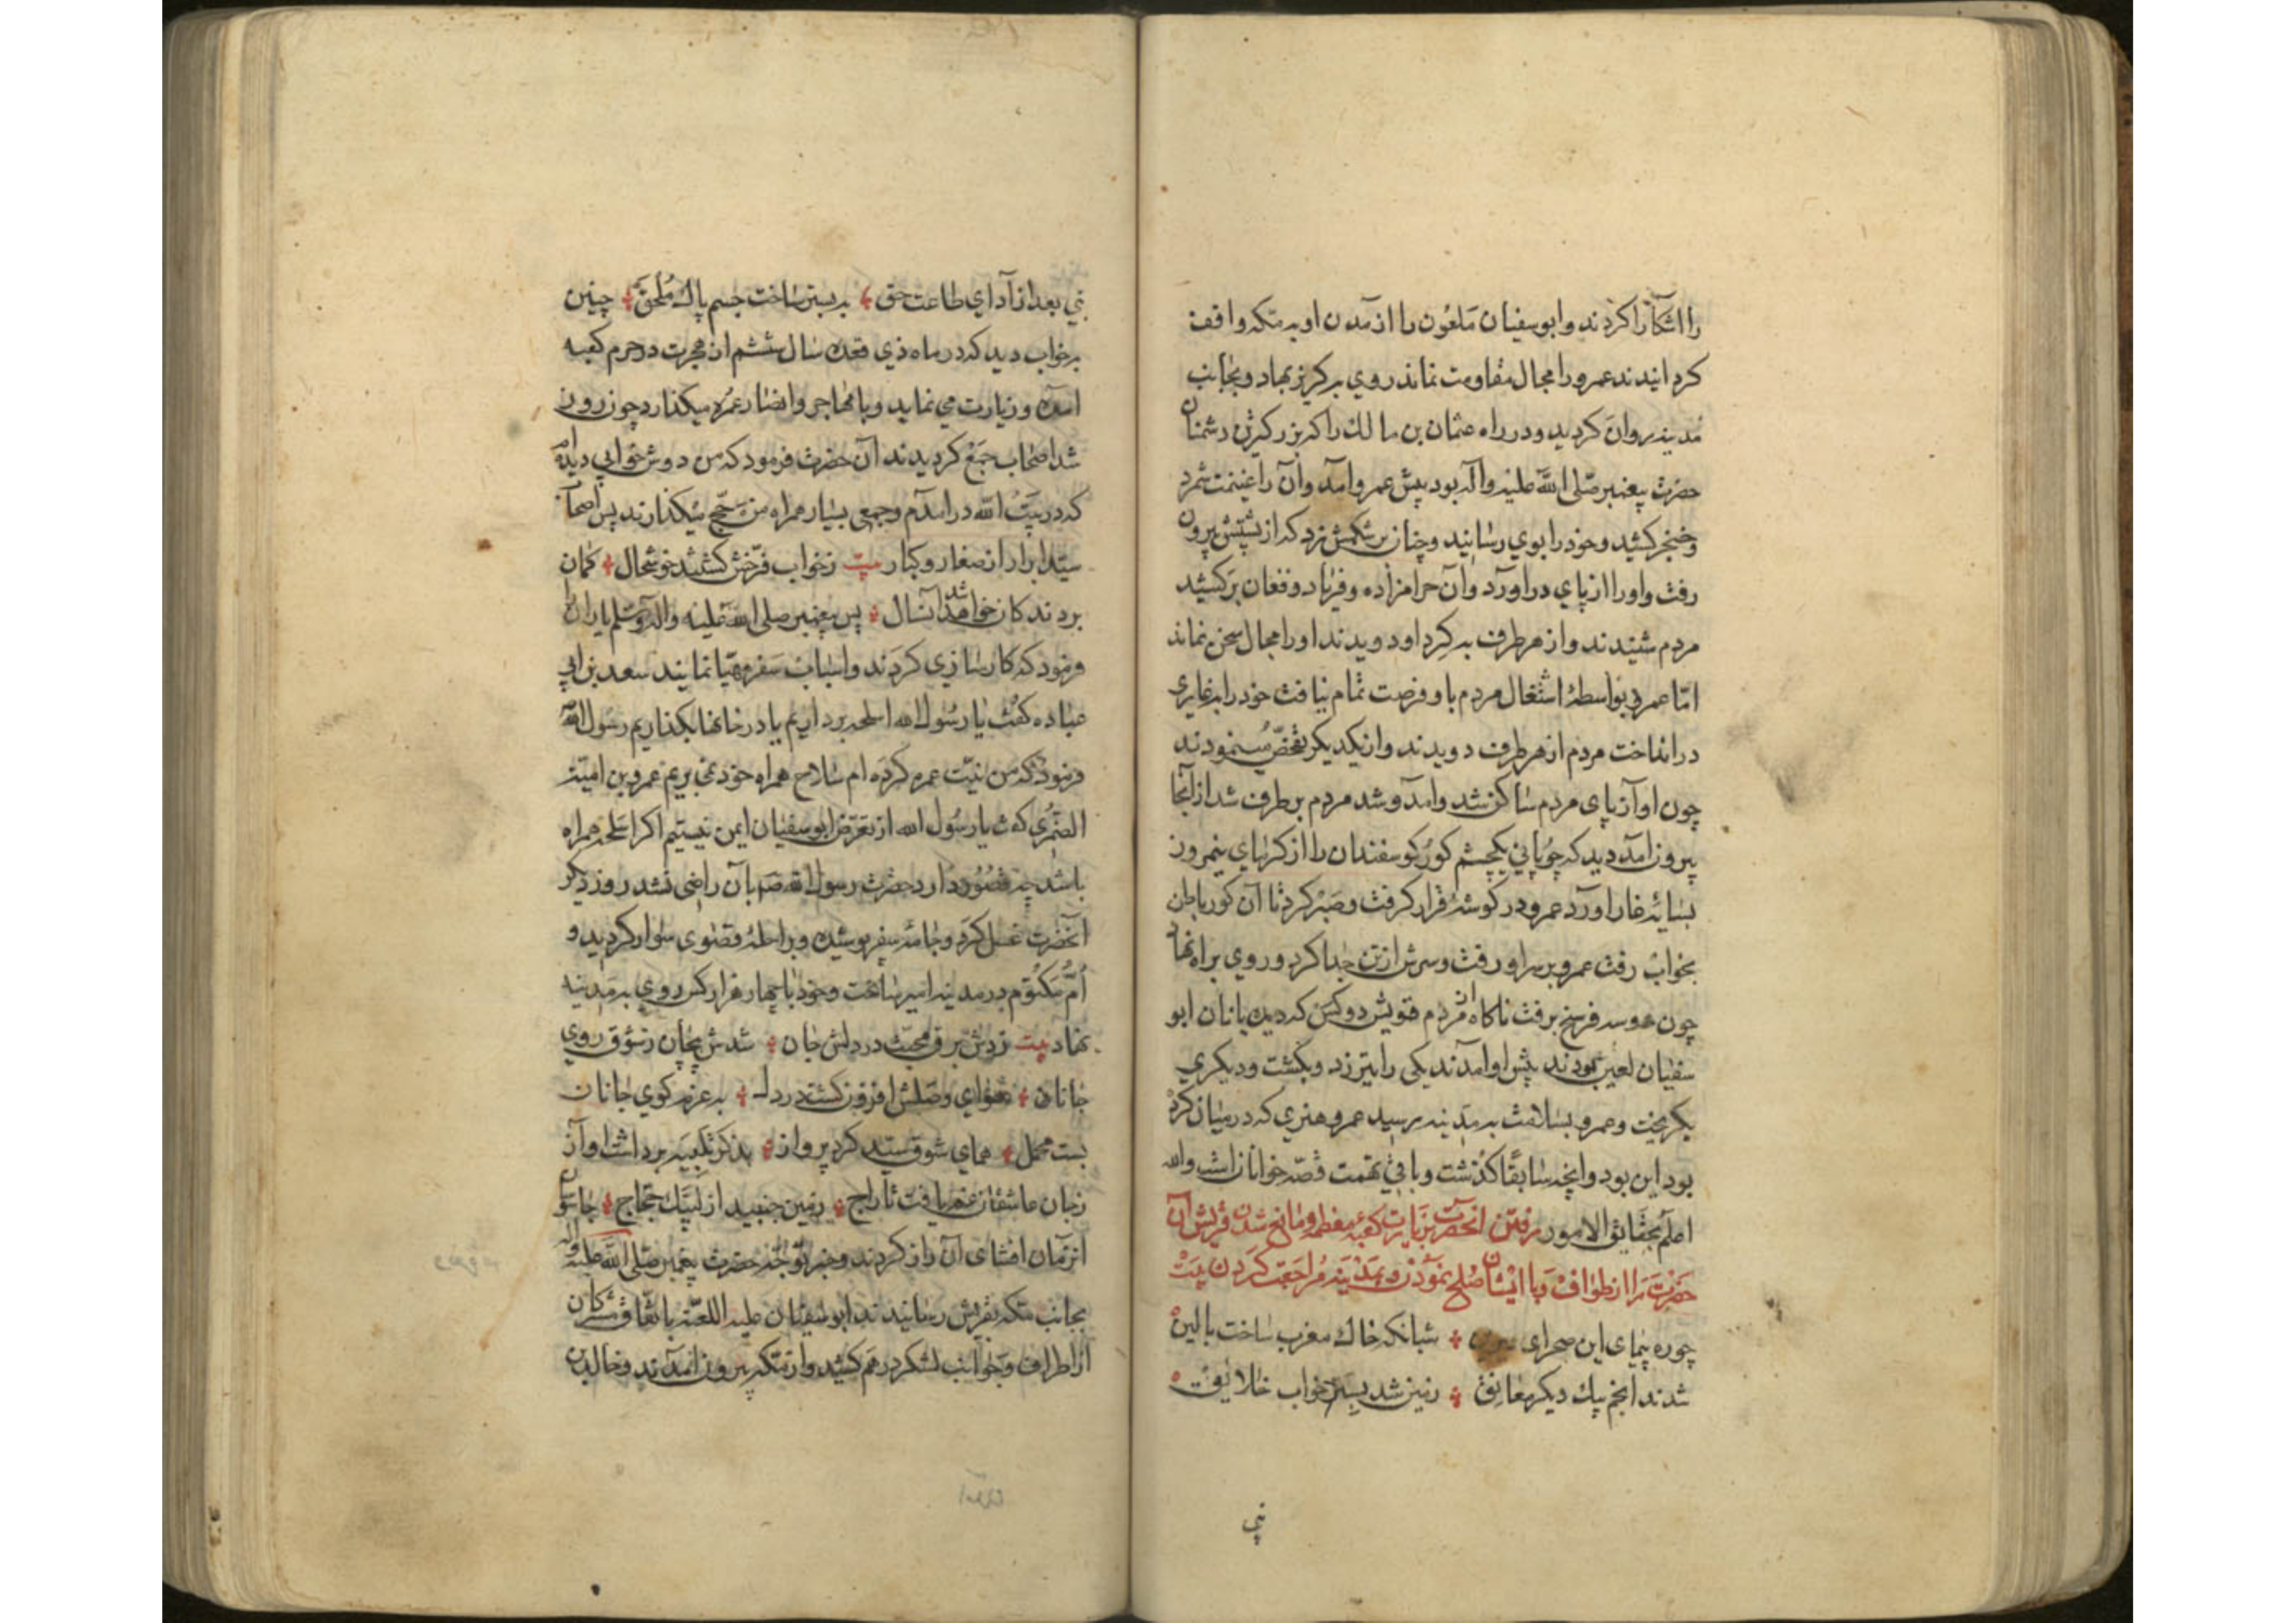 را اشکارا کردند و ابوسفیان ملعون را از آمدن او به مکه واقف
کردانیدند عمرو را مجال مقاومت نماند روی به کریز نهاد و بجانب
مدینه روان کردید و در راه عثمان بن مالک را که بزرکترین دشمنان
حضرت پیغمبر صلی الله علیه واله بود پیش عمرو آمد و آن را غنیمت شمرد
و خنجر کشید و خود را بوی رسانید و چنان بر شکمش زد که از پشتش بیرون
رفت و او را از پای در اورد و آن حرامزاده و فریاد و فغان برکشید
مردم شنیدند و از هر طرف به کرد او دویدند او را مجال سخن نماند
اما عمرو بواسطهٔ اشتغال مردم باو فرصت تمام یافت خود را به غاری
در انداخت مردم از هر طرف دویدند و از یکدیکر تفحص مینمودند
چون او آز پای مردم ساکن شد و آمد و شد مردم بر طرف شد از آنجا
بیرون آمد دید که چوپانی یکچشم کور کوسفندان را از کرمای نیمروز
بسایهٔ غار اورد عمرو در کوشهٔ قرار کرفت و صبر کرد تا آن کور باطن
بخواب رفت عمرو بر سر او رفت و سرش از تن جدا کرد و روی براه نهاد
چون دو سه فرسخ برفت ناکاه از مردم قریش دو کس که دیده بانان ابو
سفیان لعین بودند پیش او امدند یکی را بتیر زد و بکشت و دیکری
بکریخت و عمرو بسلامت به مدینه رسید عمرو هنری که در میان کرده
بود این بود و انچه سابقا کذشت و باقی تهمت قصه خوانان است والله
اعلم بحقایق الامور رفتن انحضرت بزیارت کعبهٔ معظمه و مانع شدن قریش آن
حضرت را از طواف و با ایشان صلح نمودن و بمدینه مراجعت کردن بیت
چو ره پیمای این صحرای شبانکه خاک مغرب ساخت بالین
شدند انجم بیک دیکر معانق زمین شد بستر خواب خلایق
نبی
نبی بعد از آدای طاعت حق به بستر ساخت جسم پاک ملحق چنین
بر خواب دید که در ماه ذی قعده سال ششم از هجرت در حرم کعبه
امده و زیارت می نماید و با مهاجر و انصار عمره میکذارد چون روز
شد اصحاب جمع کردیدند آن حضرت فرمود که من دوش خوابی دیده ام
که در بیت الله در امدم و جمعی بسیار همراه من حج میکذارند پس اصحاب
سید ابرار از صغار و کبار بیت زخواب فرخش کشتند خوشحال کمان
بردند کان خواهد شد آنسال پس پیغمبر صلی الله علیه واله وسلم یاران را
فرمود که کارسازی کردند و اسباب سفر مهیا نمایند سعد بن ابی
عباده کفت یا رسول الله اسلحه برداریم یا در خانها بکذاریم رسول الله
فرمود که من نیت عمره کرده ام سلاح همراه خود نمی بریم عمرو بن امیه
الضمری کفت یا رسول الله از تعرض ابوسفیان ایمن نیستیم اکر اسلحه همراه
باشد چه قصور دارد حضرت رسول الله بآن راضی نشد روز دیکر
آنحضرت غسل کرد و جامهٔ سفر پوشیده و بر راحلهٔ قصوی سوار کردید و
ام مکتوم در مدینه امیر ساخت و خود با چهار هزار کس روی به مدینه
نهاد بیت زدش برق محبت در دلش جان شدش پیچان ز شوق روی
جانان هوای وصلش افزون کشت در دل به عزم کوی جانان
بست محمل همای شوق سید کرد پرواز بذکر تلبیه برداشت اواز
زجان عاشقان غم یافت تاراج زمین جنبید از لبیک حجاج جاسوسان
انزمان افشای آن راز کردند و خبر توجه حضرت پیغمبر صلی الله علیه واله
بجانب مکه بقریش رسانیدند ابوسفیان علیه اللعنه باتفاق مشرکان
از اطراف و جوانب لشکر درهم کشید و از مکه بیرون آمدند و خالد بن